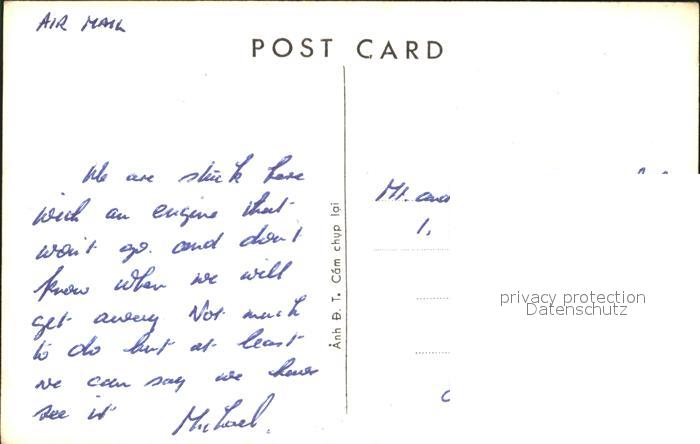 AIR MAIL
POST CARD
We are stuck here
with an engine that
won't go. and don't
know when we will
get away Not much
to do but at least
we can say we have
see it
Michael.
Ảnh Đ. T. Cấm chụp lại
Mr. and
1,
privacy protection
Datenschutz